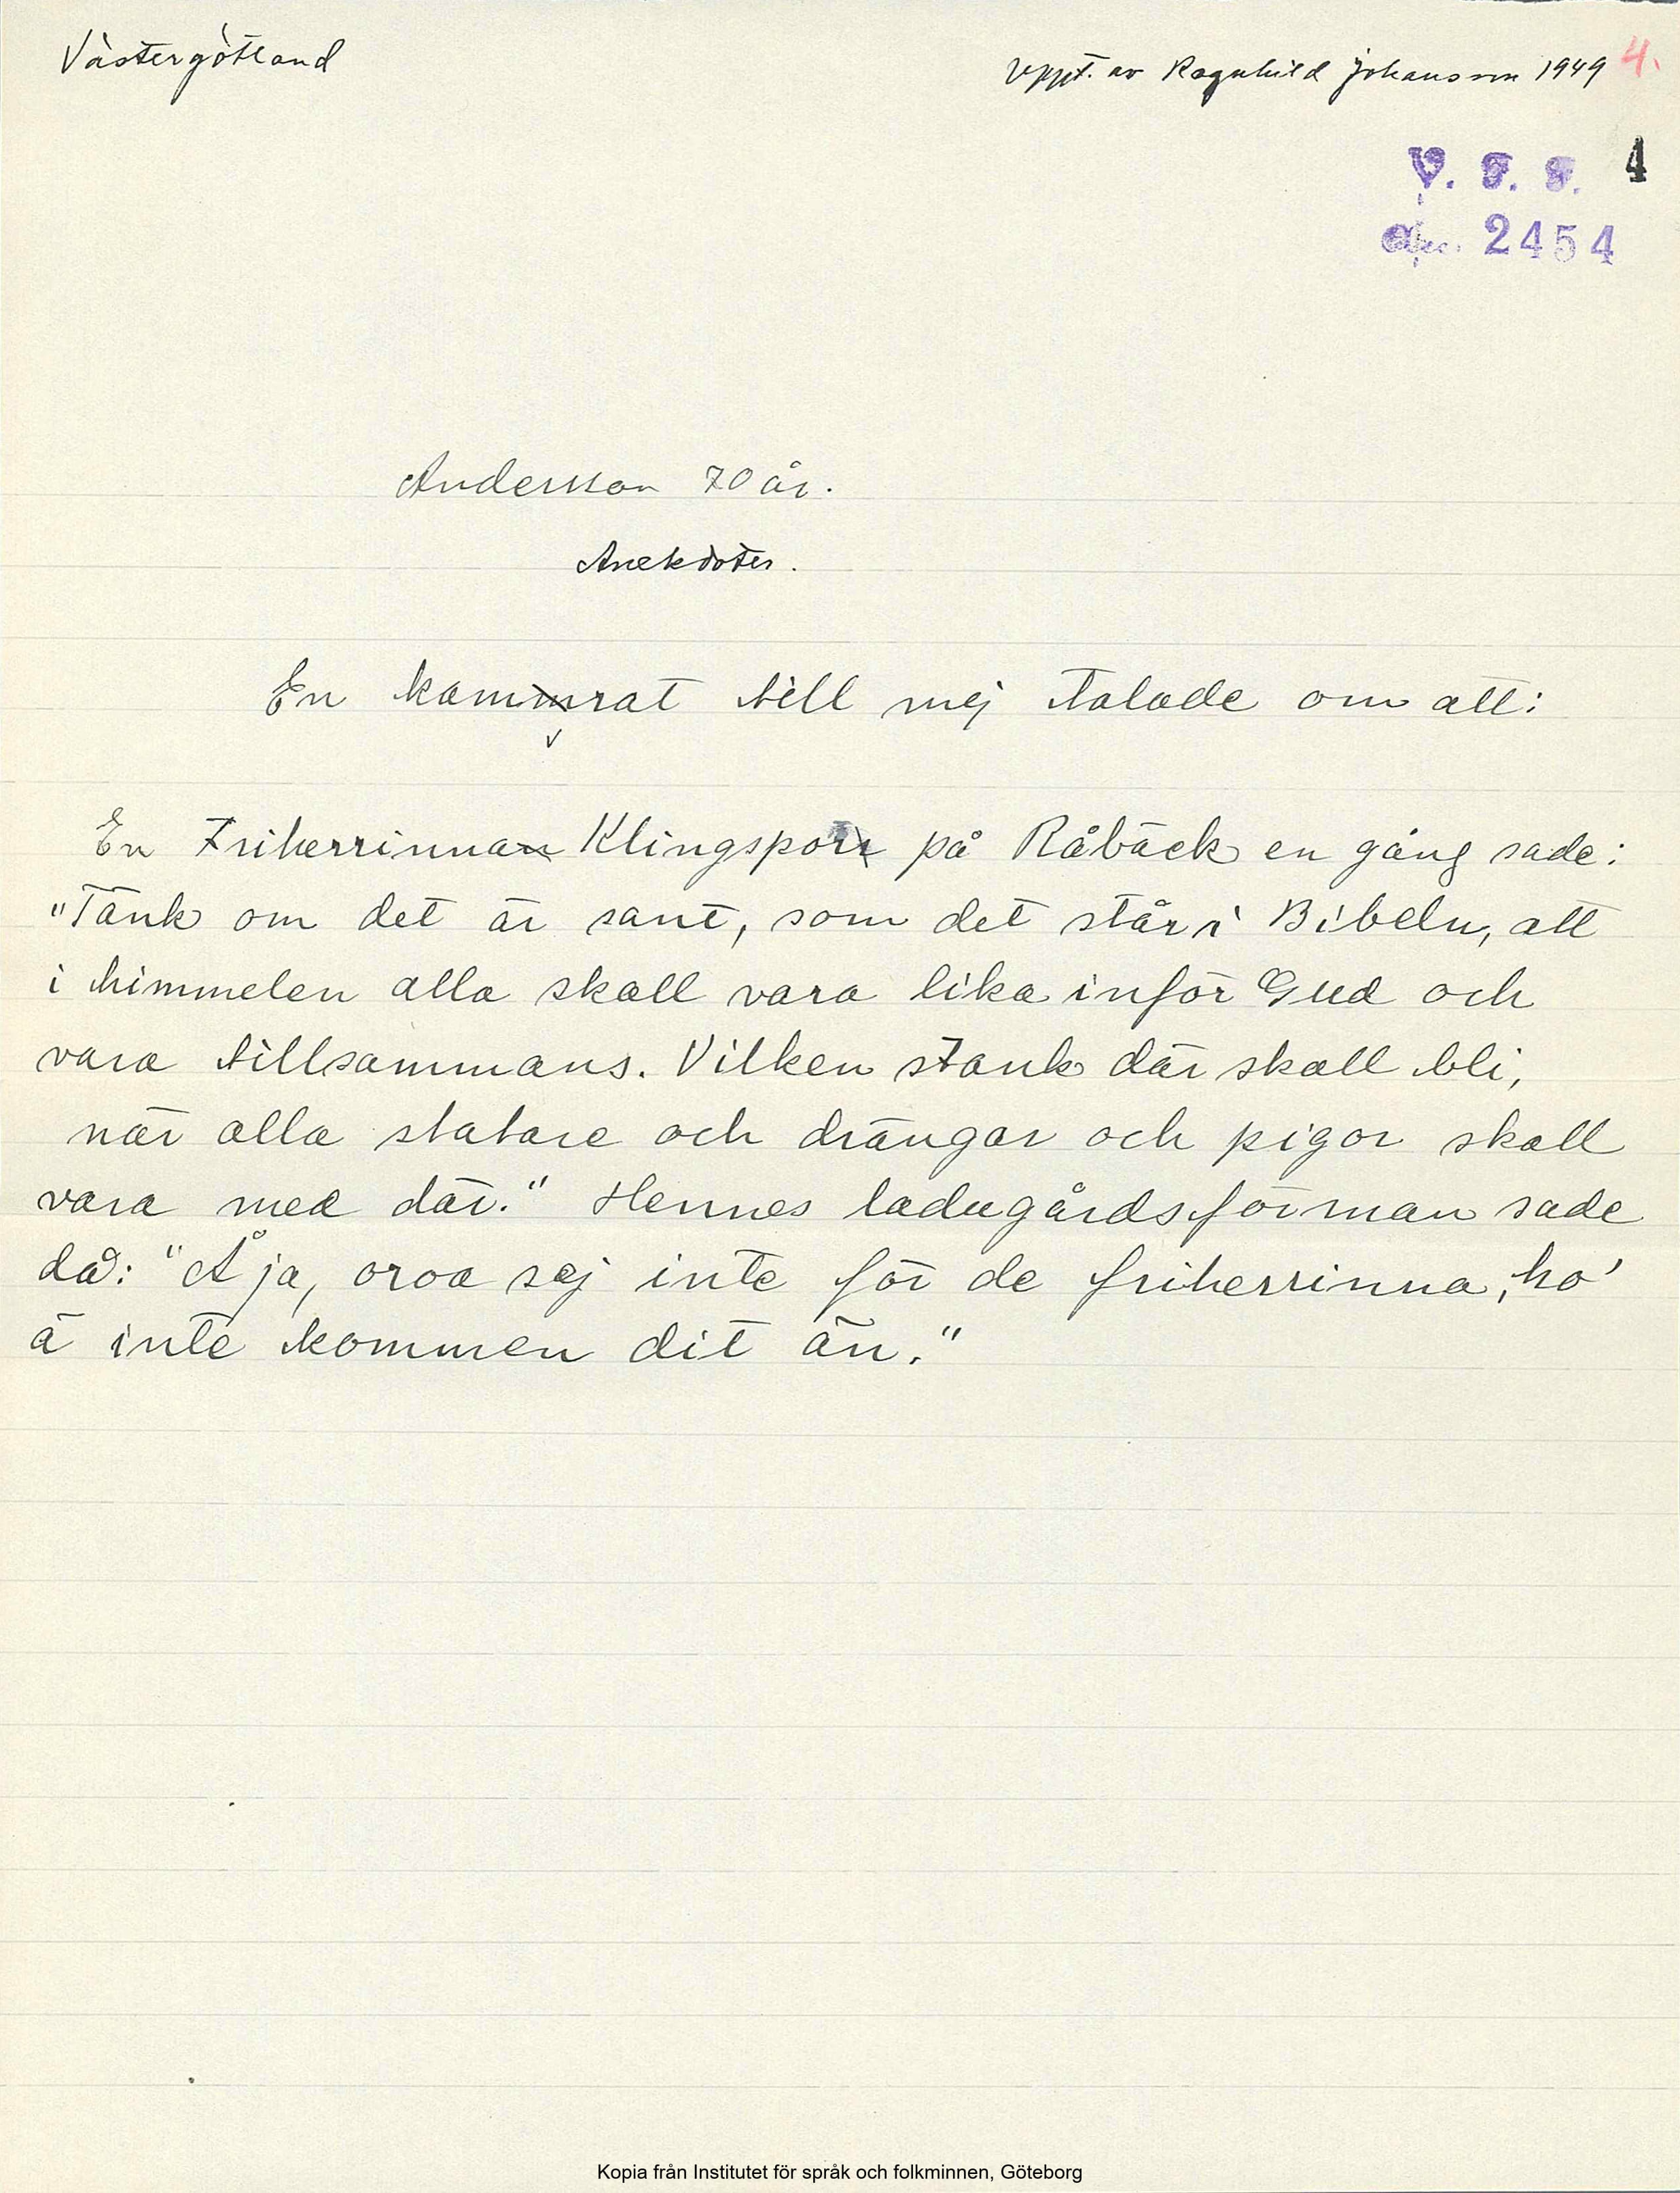 Västergötland
Uppt. av Ragnhild Johansson 1949 4.
V. F. F. 4
Acc. 2454
Andersson 70 år.
Anekdoter.
En kammrat till mej talade om att:
En Friherrinnan Klingsporr på Råbäck en gång sade:
"Tänk om det är sant, som det står i Bibeln, att
i himmelen alla skall vara lika inför Gud och
vara tillsammans. Vilken stank där skall bli,
när alla statare och drängar och pigor skall
vara med där." Hennes ladugårdsförman sade
då: "Å ja, oroa sej inte för de friherrinna, ho'
ä inte kommen dit än."
Kopia från Institutet för språk och folkminnen, Göteborg